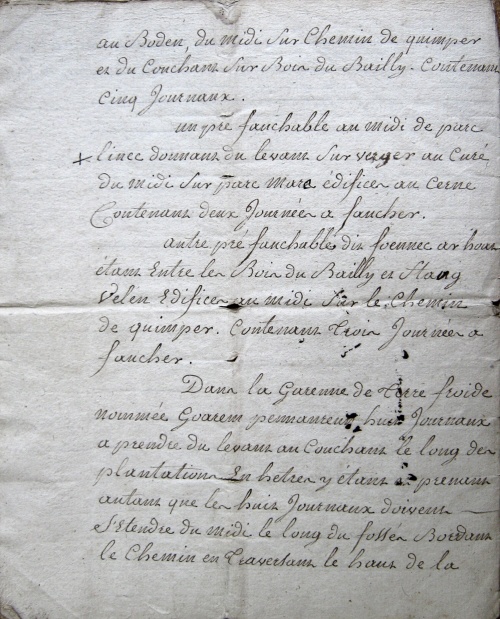 au Boden, du midi sur Chemin de quimper
et du Couchant sur Bois du Bailly. Contenant
cinq Journaux.
un pré fauchable au midi de parc
linec donnant du levant sur verger au Curé
du midi sur parc marc édifices au cerne
Contenant deux Journées a faucher.
autre pré fauchable dit foennec ar
étant Entre les Bois du Bailly et Stang
velen Edifices au midi sur le Chemin
de quimper. Contenant trois Journées a
faucher.
Dans la Garenne de terre froide
nommée Goarem huit Journaux
a prendre du levant au Couchant le long des
plantations En hetres y étant et prenant
autant que les huit Journaux doivent
s'Etendre du midi le long du fossé Bordant
le Chemin en traversant le haut de la